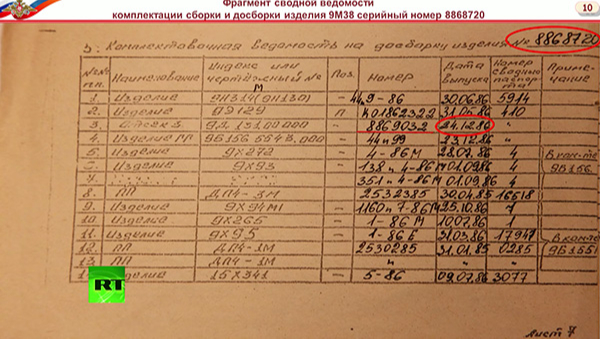 Фрагмент сводной ведомости
комплектации сборки и досборки изделия 9М38 серийный номер 8868720
10
Комплектовочная ведомость на досборку изделия № 8868720
№№ п.п. Наименование Индекс или чертёжный № Поз. Номер Дата выпуска Номер сводного паспорта Примечание
М
1. Изделие – 9-86 30.06.86 5914
2. Изделие 9Э129 П 31.05.86
3. 8869032 24.12.86 "
4. Изделие – 44п99 23.12.86 "
5 Изделие 9Х272 – 4-86М 28.07.86 4
Изделие 9Х93 – 4-86М 01.09.86 4
– 351п 4-86М 01.09.86 4
8. ПП ДП4-1М – 2532385 30.04.86 16518
9. Изделие 9Х94М1 – 1160п 7-86 25.10.86
10 Изделие 9Х265 – 1-86 М 10.07.86
11. Изделие 9Х95 – 1-86 Е 21.03.86 17947
12. ПП ДП4-1М – 2530285 31.01.85 0285
13. ПП ДП4-1М – " "
Изделие 15Х341 – 5-86 09.07.86 3077
RT
Лист 7